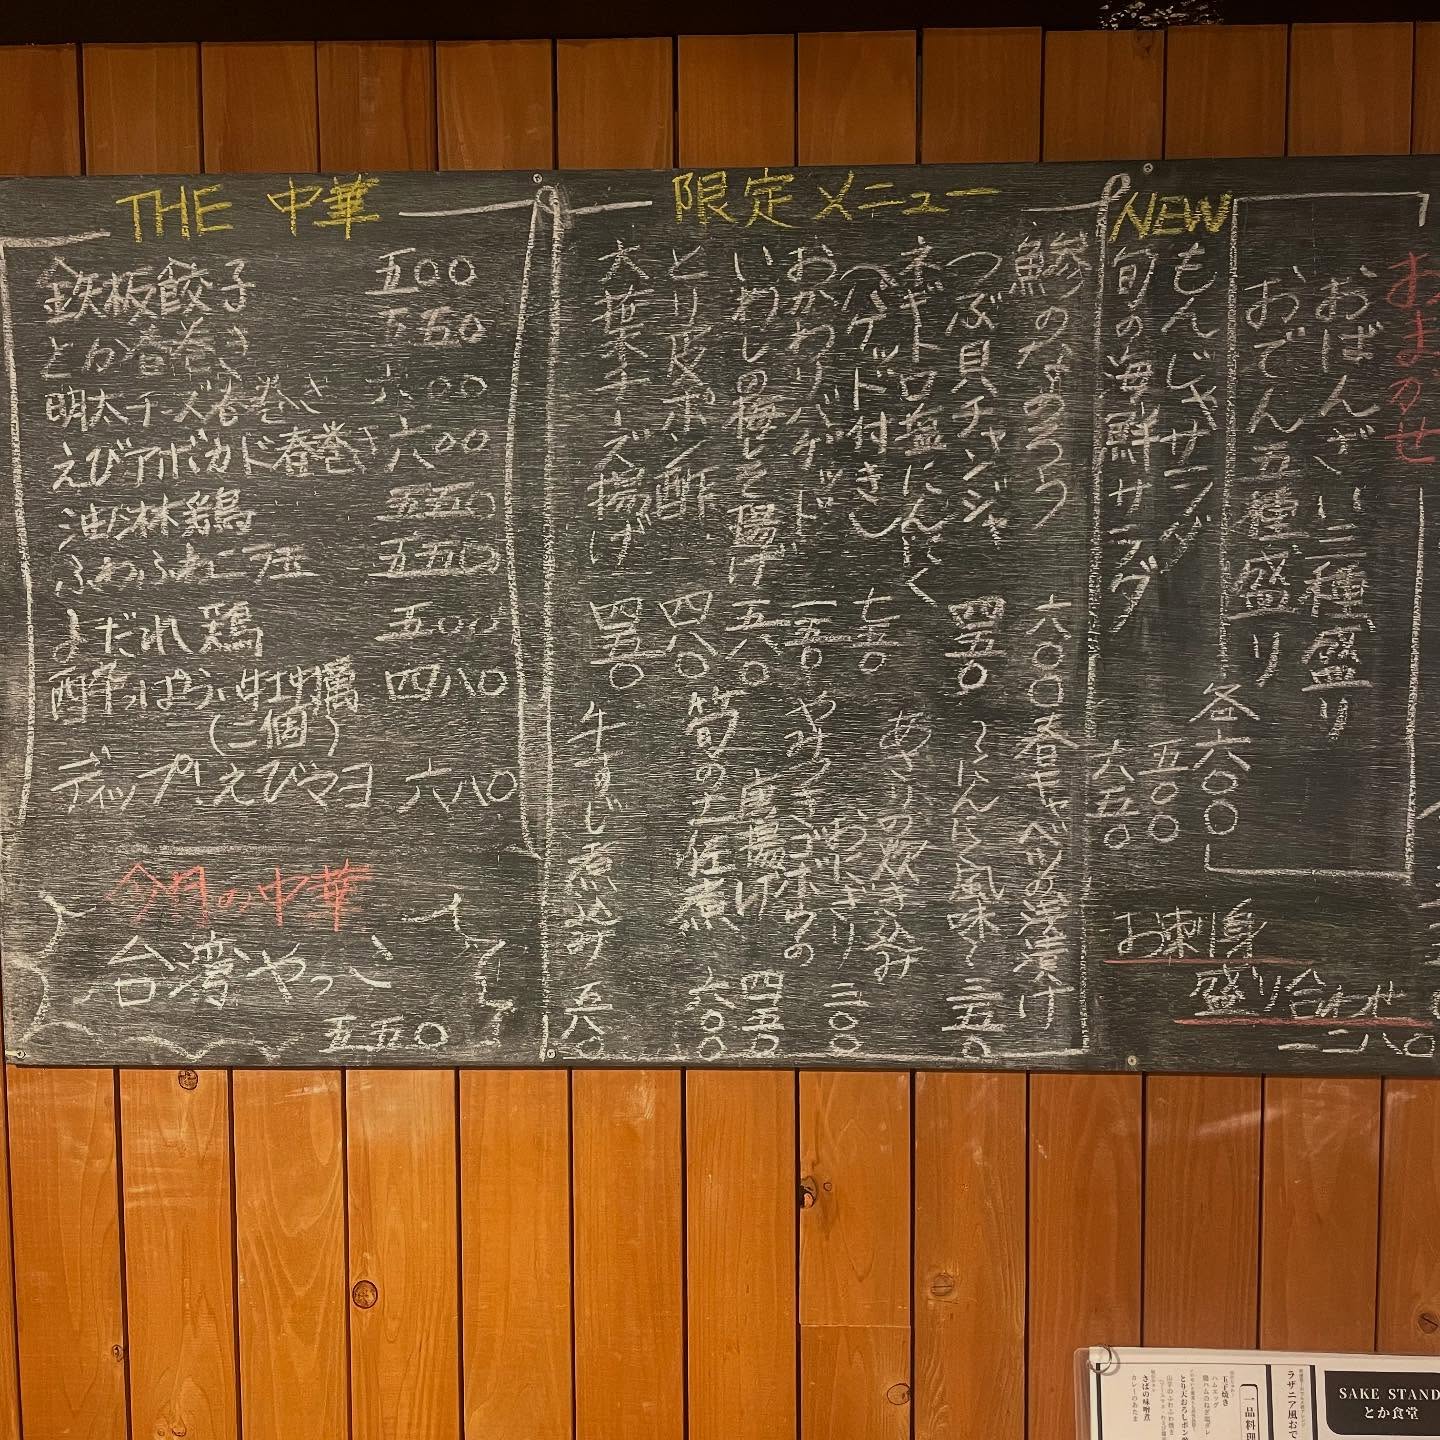 THE 中華
鉄板餃子 五00
とか春巻き 五五0
明太チーズ春巻き 六00
えびアボカド春巻き 六00
油淋鶏 五五0
ふわふわニラ玉 五五0
よだれ鶏 五00
酔っぱらい牡蠣 四八0
(二個)
ディップ!えびマヨ 六八0
今月の中華
台湾やっこ
五五0
限定メニュー
鯵のなめろう 六00
つぶ貝チャンジャ 四五0
ネギトロ塩にんにく
(バゲット付き) 七五0
おかわりバゲット 一五0
いわしの梅しそ揚げ 五八0
とり皮ポン酢 四八0
大葉チーズ揚げ 四五0
春キャベツの浅漬け
〜にんにく風味〜 三五0
あさりの炊き込み
おにぎり 三00
やみつきゴボウの
唐揚げ 四五0
筍の土佐煮 六00
牛すじ煮込み 五八0
NEW
おばんざい三種盛り
おでん五種盛り
各六00
もんじゃサラダ 五00
旬の海鮮サラダ 六五0
お刺身
盛り合わせ
一二八0
SAKE STAND
とか食堂
ラザニア風おで
一品料理
玉子焼き
ハムエッグ
とり天おろしポン酢
さばの味噌煮
カレーのあたま